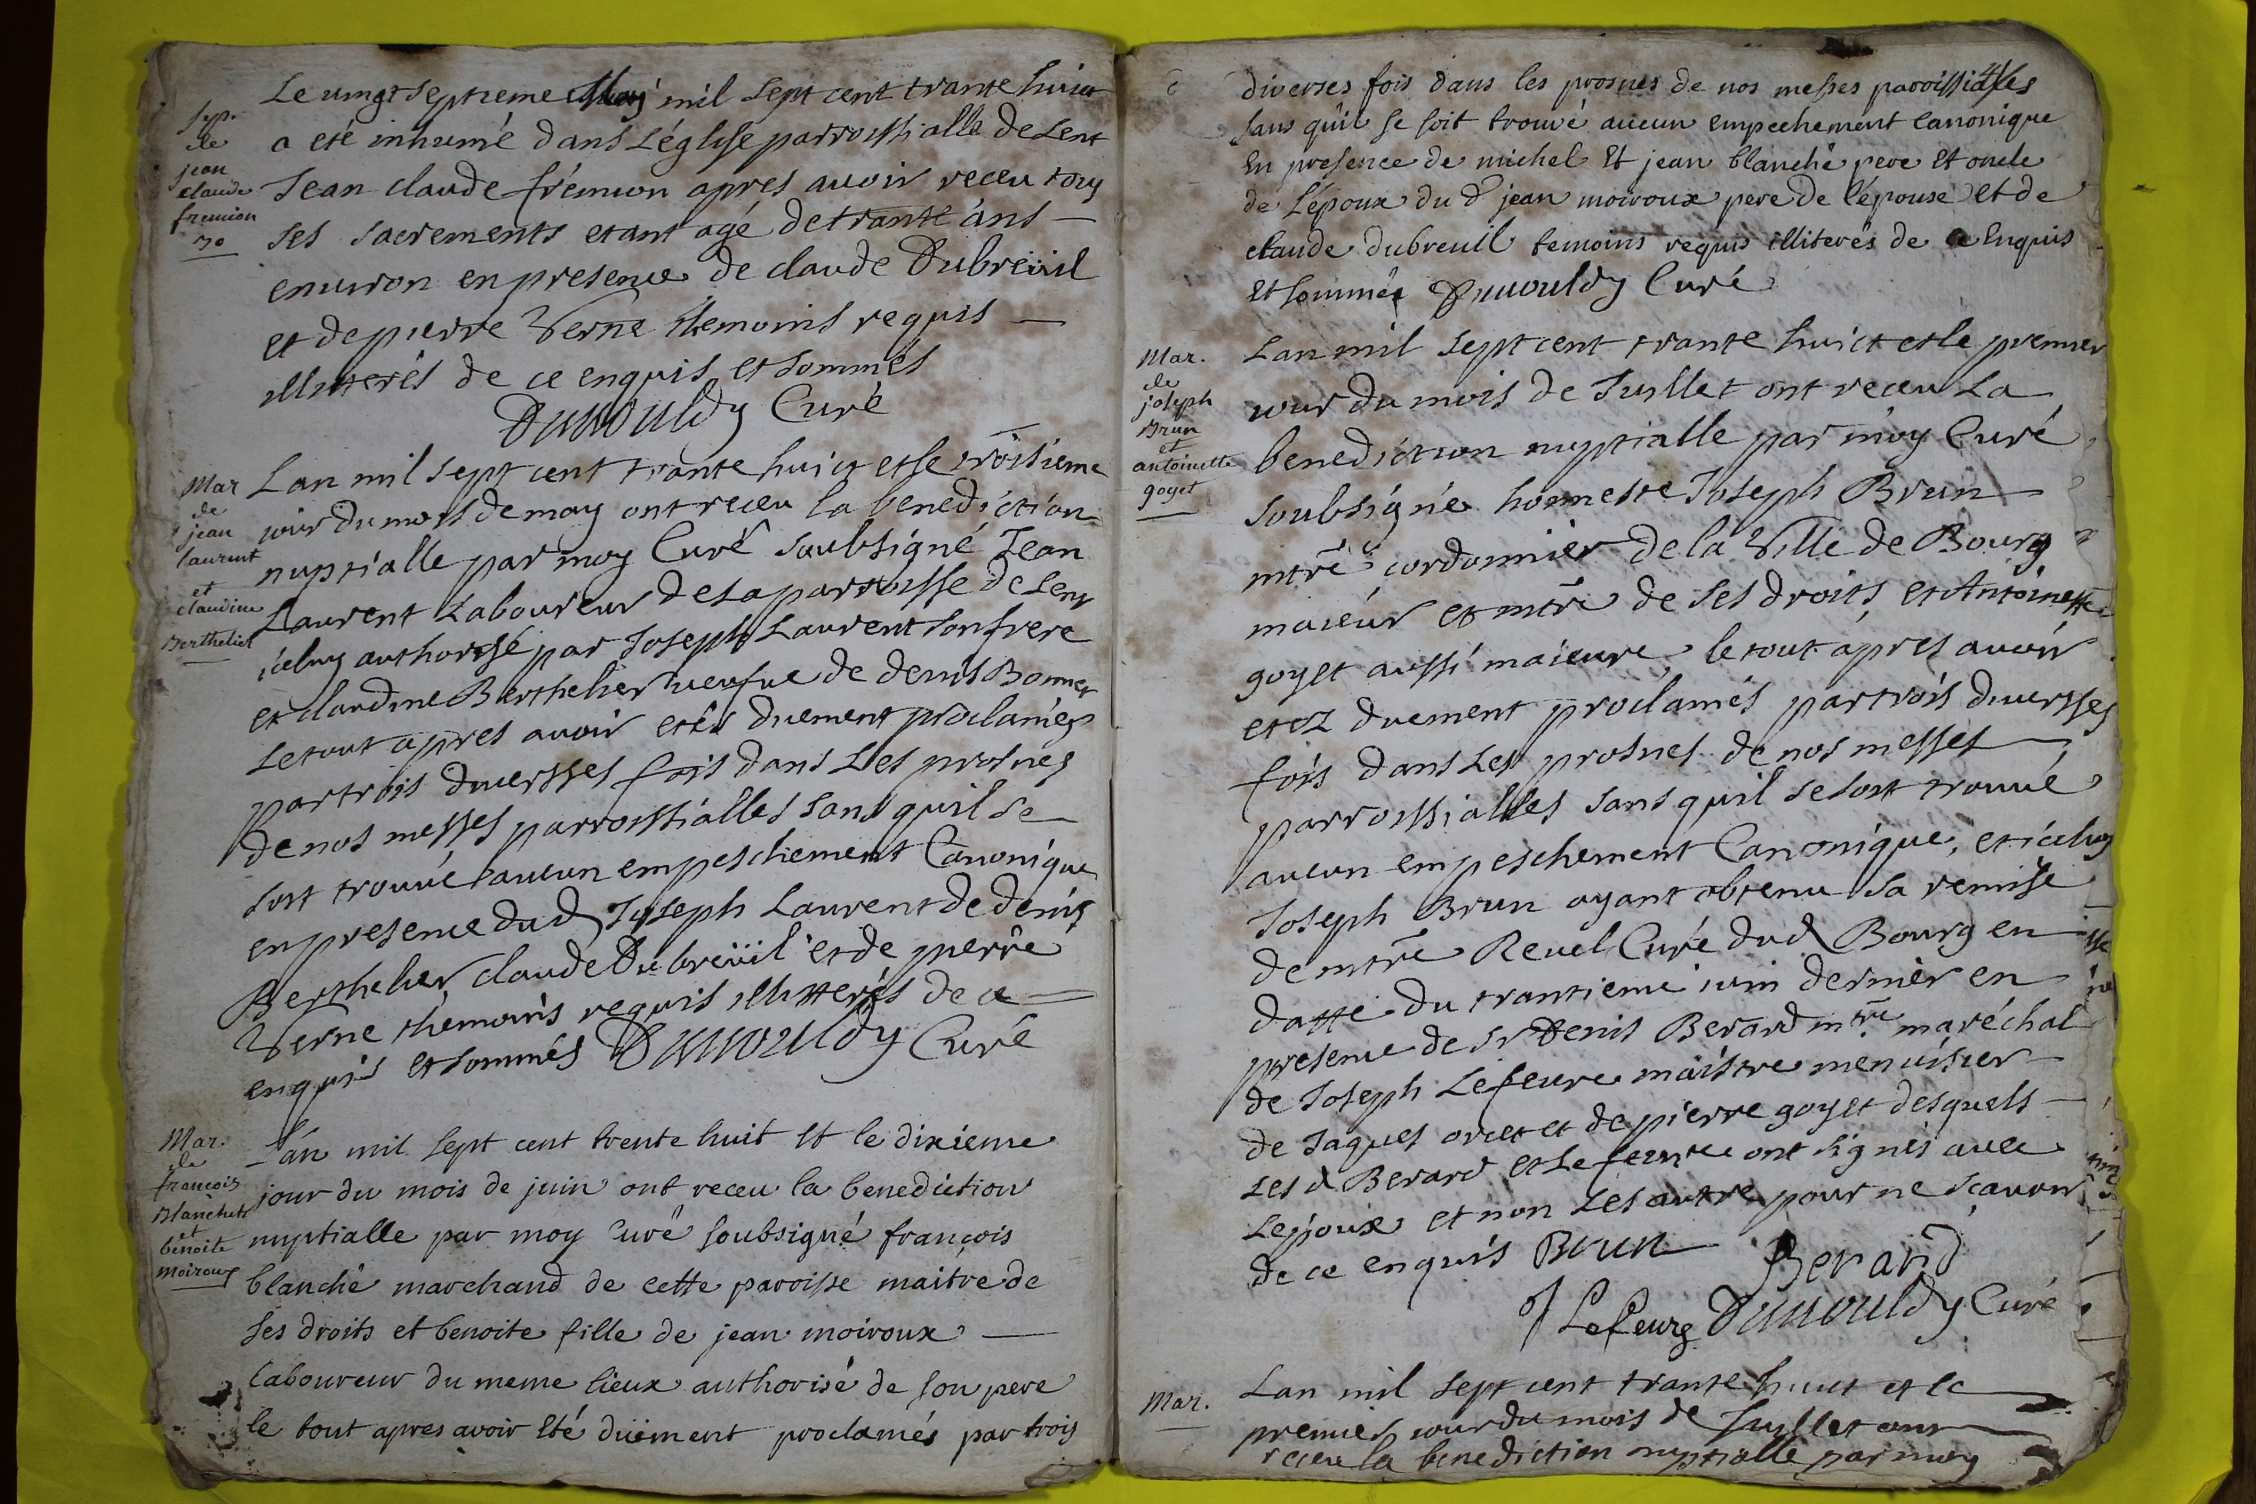 Sep.
de
jean
claude
fremion
30
Le vingt septieme May mil sept cent trante huict
a eté inhumé dans L'église parroissialle de Lent
Jean claude frémion apres avoir receu tous
ses sacrements etant agé de trante ans
environ en presence de claude Dubreüil
et de pierre Verne themoins requis
illitterés de ce enquis et sommés
Duvouldy Curé
Mar
de
jean
laurent
et
claudine
Berthelier
Lan mil sept cent trante huict et le troisieme
jour du mois de may ont receu la benediction
nuptialle par moy Curé soubsigné Jean
Laurent Laboureur de La parroisse de Lent
iceluy authorisé par Joseph Laurent son frere
et claudine Berthelier veufve de denis Bonnet
Le tout apres avoir etés duement proclamés
par trois diversses fois dans Les prosnes
de nos messes parroissialles sans quil se
soit trouvé aucun empeschement Canonique
en presence dud Joseph Laurent de denis
Berthelier claude Dubreüil et de pierre
Verne themoins requis illitterés de ce
enquis et sommés Duvouldy Curé
Mar.
de
francois
Blanchet
et
benoite
moiroux
L'an mil sept cent trente huit et le dixieme
jour du mois de juin ont receu la benediction
nuptialle par moy Curé soubsigné françois
blanché marchand de cette paroisse maitre de
ses droits et benoite fille de jean moiroux
laboureur du meme lieux authorisé de son pere
le tout apres avoir été düement proclamés par trois
diverses fois dans les prosnes de nos messes paroissialles
sans qu'il se soit trouvé aucun empechement canonique
en presence de michel et jean blanché pere et oncle
de L'époux du d jean moiroux pere de l'épouse et de
claude dubreuil temoins requis illiterés de ce enquis
et sommés Duvouldy Curé
Mar.
de
joseph
Brun
et
antoinette
goyet
Lan mil sept cent trante huict et le premier
jour du mois de Juillet ont receu La
benediction nuptialle par moy Curé
soubsigné honneste Joseph Brun
mtre cordonnier de la Ville de Bourg
maieur et mtre de ses droits et Antoinette
goyet aussi maieure le tout apres avoir
etez duement proclamés par trois diversses
fois dans Les prosnes de nos messes
parroissialles sans quil se soit trouvé
aucun empeschement Canonique, et iceluy
Joseph Brun ayant obtenu sa remise
de mtre Revel Curé dud Bourg en
datte du trantieme iuin dernier en
presence de sr Denis Berard mtre maréchal
de Joseph Lefeuvre maistre menuisier
de Jaques orcet et de pierre goyet desquels
Les d Berard et Lefeuvre ont signés avec
Lepoux et non Les autre pour ne scavoir
de ce enquis Brun Berard
J Lefeuvre Duvouldy Curé
Mar.
Lan mil sept cent trante huict et le
premier jour du mois de Juillet ont
receu la benediction nuptialle par moy